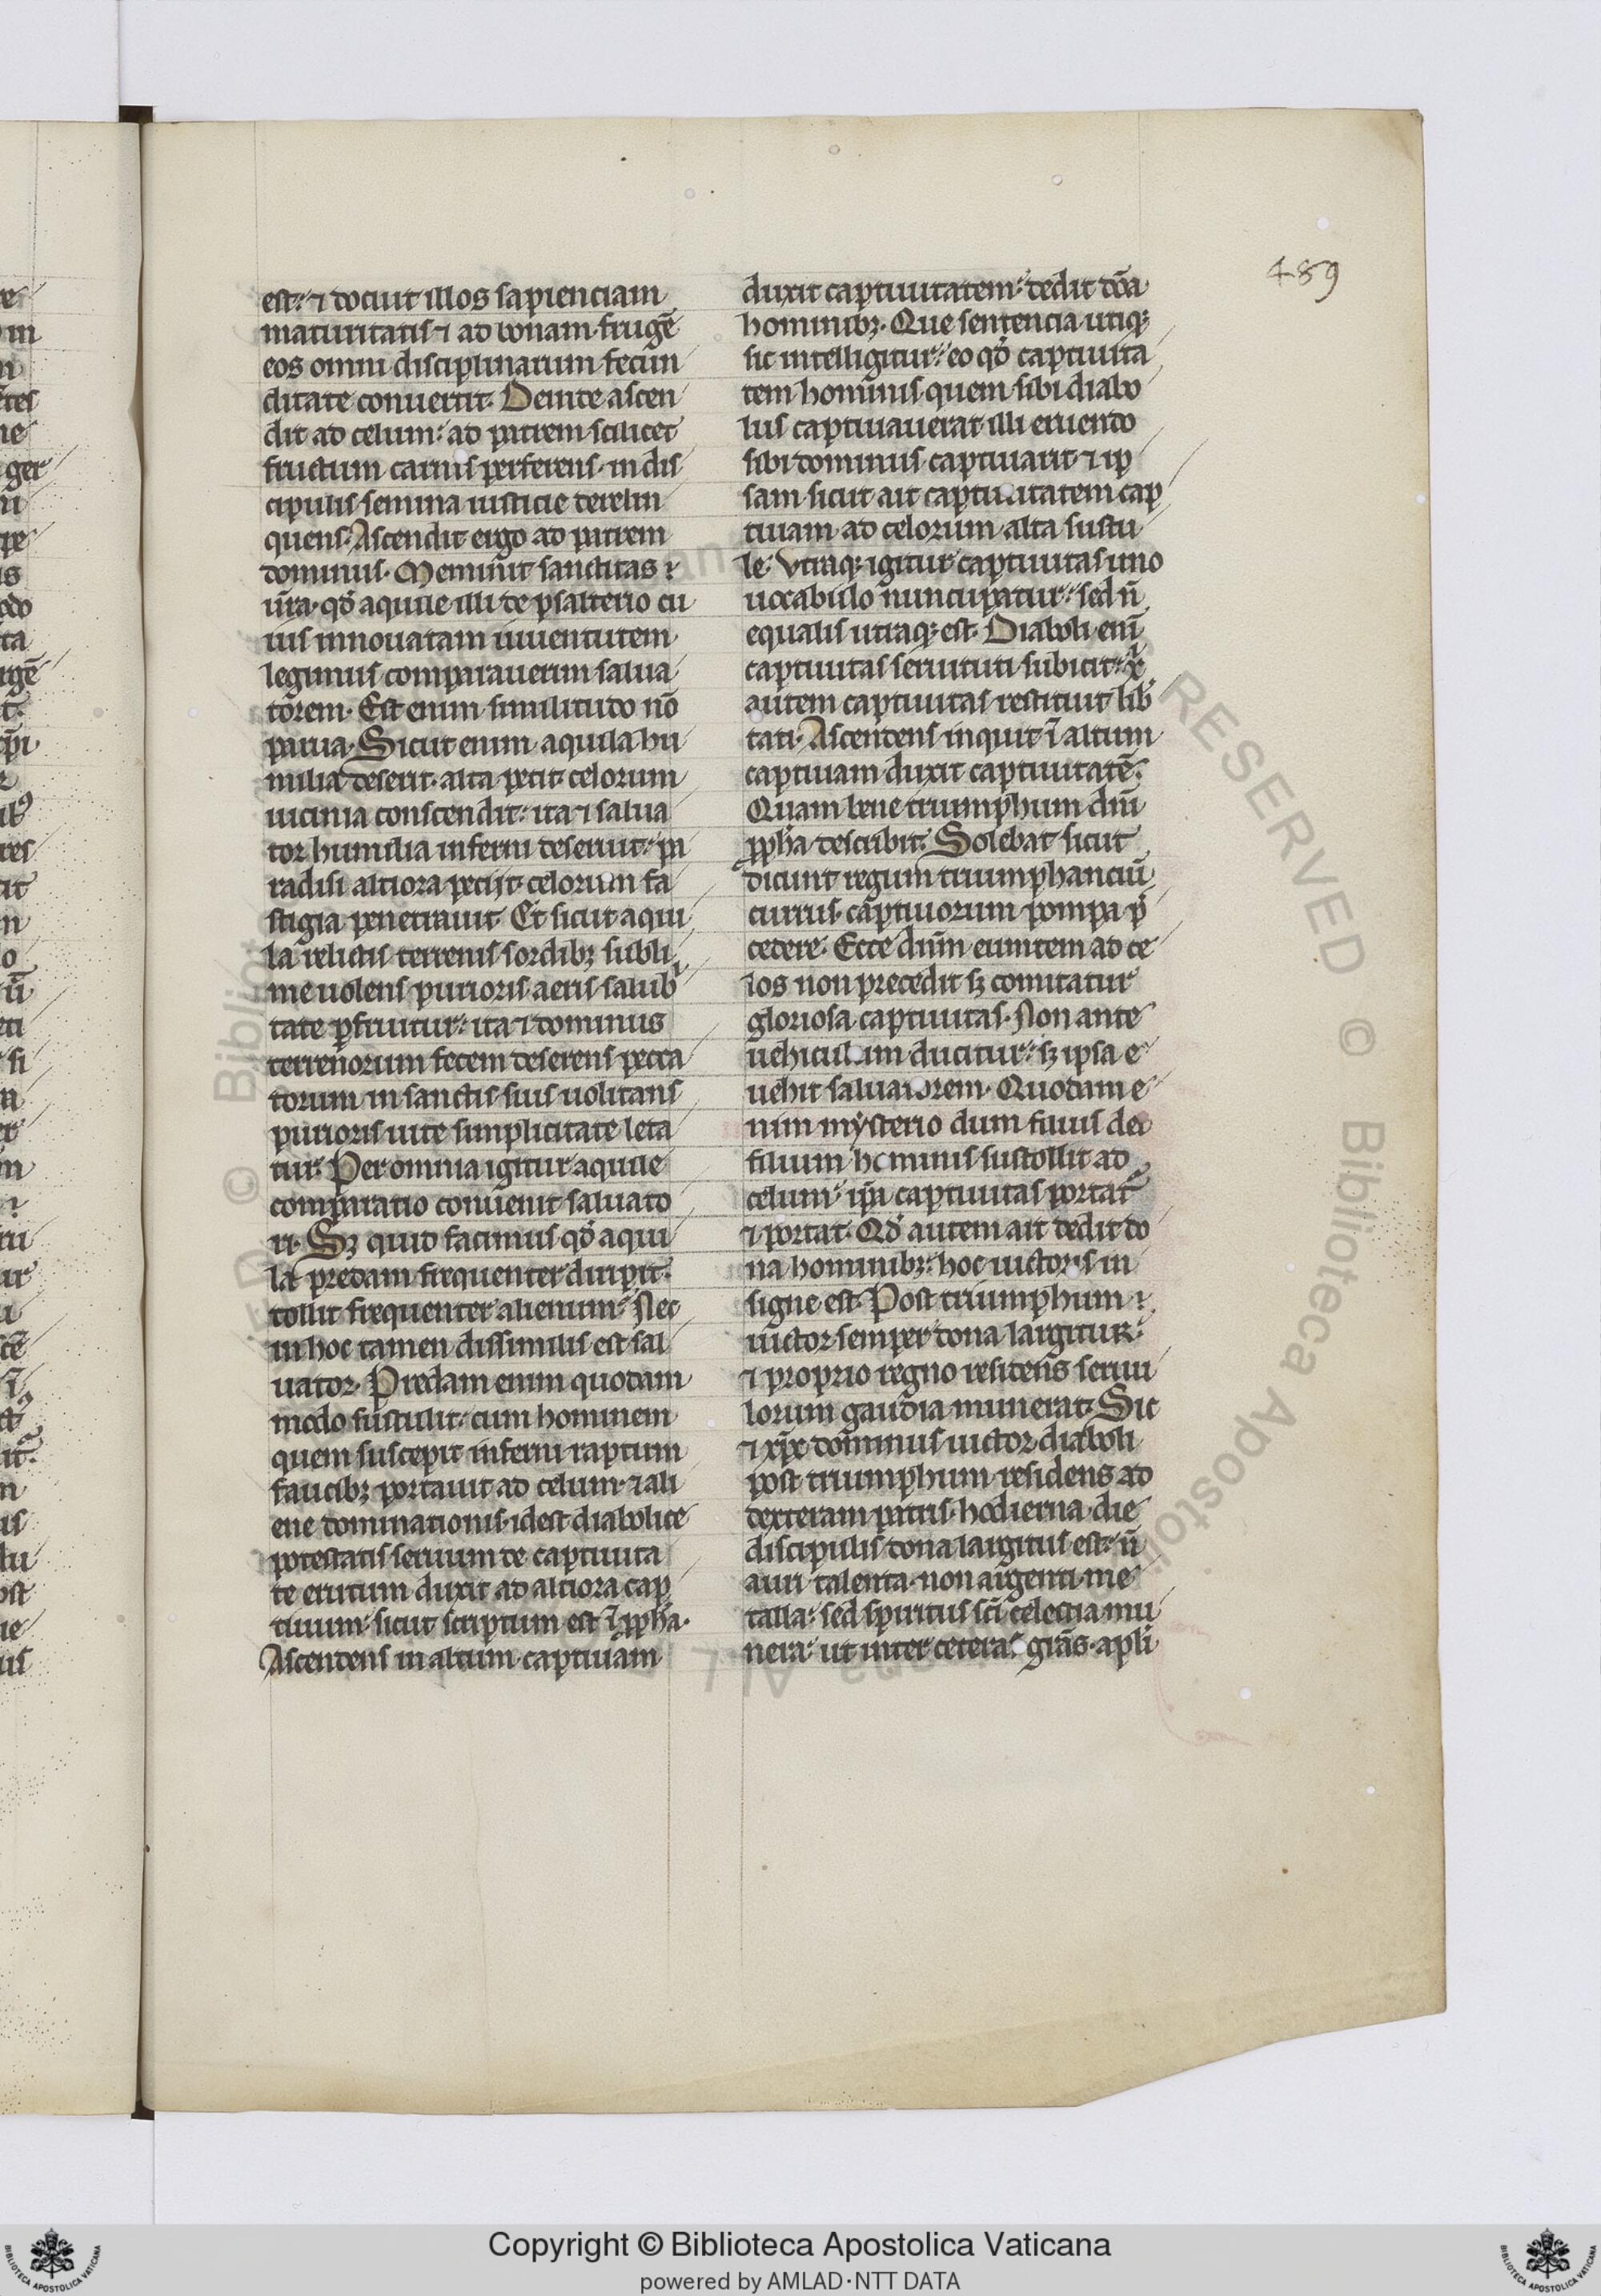 489
est: ⁊ docuit illos sapienciam
maturitatis ⁊ ad bonam frugē
eos omni disciplinarum fecun
ditate conuertit. Deinde ascen
dit ad celum: ad patrem scilicet
fructum carnis perferens. in dis
cipulis semina iusticie derelin
quens. Ascendit ergo ad patrem
dominus. Meminit sanctitas
ur̄a. qd̓ aquile illi de psalterio cu
ius innouatam iuuentutem
legimus comparauerim salua
torem. Est enim similitudo nō
parua. Sicut enim aquila hu
milia deserit. alta petit. celorum
uicinia conscendit: ita ⁊ salua
tor humilia inferni deseruit: pa
radisi altiora petijt. celorum fa
stigia penetrauit. Et sicut aqui
la relictis terrenis sordibꝫ subli
me uolens purioris aeris salubⁱ
tate ꝑfruitur: ita ⁊ dominus
terrenorum fecem deserens pecca
torum in sanctis suis uolitans
purioris uite simplicitate leta
tur. Per omnia igitur aquile
comparatio conuenit saluato
ri. Sꝫ quid facimus qd̓ aqui
la predam frequenter diripit.
tollit frequenter alienum. Nec
in hoc tamen dissimilis est sal
uator. Predam enim quodam
modo sustulit: cum hominem
quem suscepit inferni raptum
faucibꝫ portauit ad celum. ⁊ ali
ene dominationis. idest diabolice
potestatis seruum de captiuita
te erutum duxit ad altiora cap
tiuum. sicut scriptum est ī ꝓph̓a.
Ascendens in altum captiuam
duxit captiuitatem: dedit dōa
hominibꝫ. Que sentencia utiqꝫ
sic intelligitur: eo qd̓ captiuita
tem hominis quem sibi diabo
lus captiuauerat illi eruendo
sibi dominus captiuarit. ⁊ ip
sam sicut ait captiuitatem cap
tiuam. ad celorum alta sustu
le. Vtraqꝫ igitur captiuitas uno
uocabulo nuncupatur: sed n̄
equalis utraqꝫ est. Diaboli enī
captiuitas seruituti subicit: xⁱ
autem captiuitas restituit libⁱ
tati. Ascendens inquit ī altum
captiuam duxit captiuitatē.
Quam bene triumphum dnī
ꝓph̓a describit. Solebat sicut
dicunt regum triumphanciū
currus. captiuorum pompa p̄
cedere. Ecce dnm̄ euntem ad ce
los non precedit sꝫ comitatur
gloriosa captiuitas. Non ante
uehiculum ducitur: sꝫ ipsa e
uehit saluatorem. Quodam e
nim mysterio dum filius dei
filium hominis sustollit ad
celum: ip̄a captiuitas portat᷑
⁊ portat. Qd̓ autem ait dedit do
na hominibꝫ: hoc uictoris in
signe est. Post triumphum
uictor semper dona largitur:
⁊ proprio regno residens seruu
lorum gaudia munerat. Sic
⁊ xp̄c dominus uictor diaboli
post triumphum residens ad
dexteram patris. hodierna die
discipulis dona largitus est: n̄
auri talenta. non argenti me
talla: sed spiritus sc̄i celestia mu
nera. ut inter cetera: gr̄as. apli
Copyright © Biblioteca Apostolica Vaticana
powered by AMLAD·NTT DATA